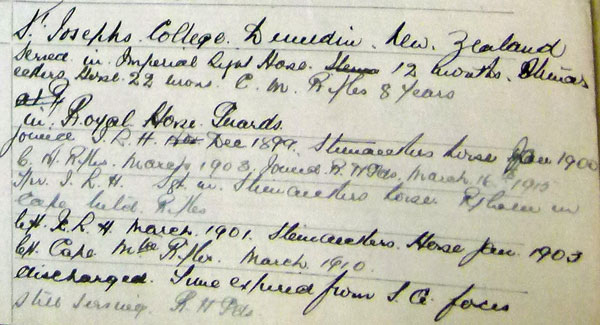 St Josephs College. Dunedin. New. Zealand
Served in Imperial Light Hose. 12 months. Steina
eckers Horse. 22 mons. C. M. Rifles 8 years
in Royal Horse Guards.
joined I. L. H. Dec 1899. Steinaeckers horse Jan 1900
C. M. Rifles. March 1903, Joined R. H Gds, March 16th 1910
Tpr. I. L. H. Sgt in Steinaeckers horse. Rifleman in
Cape Mtd. Rifles
left I. L. H March. 1901. Steinaeckers. Horse Jan. 1903
left Cape Mtd Rifles. March. 1910.
discharged. Time expired from S. A. forces
still serving. R. H Gds